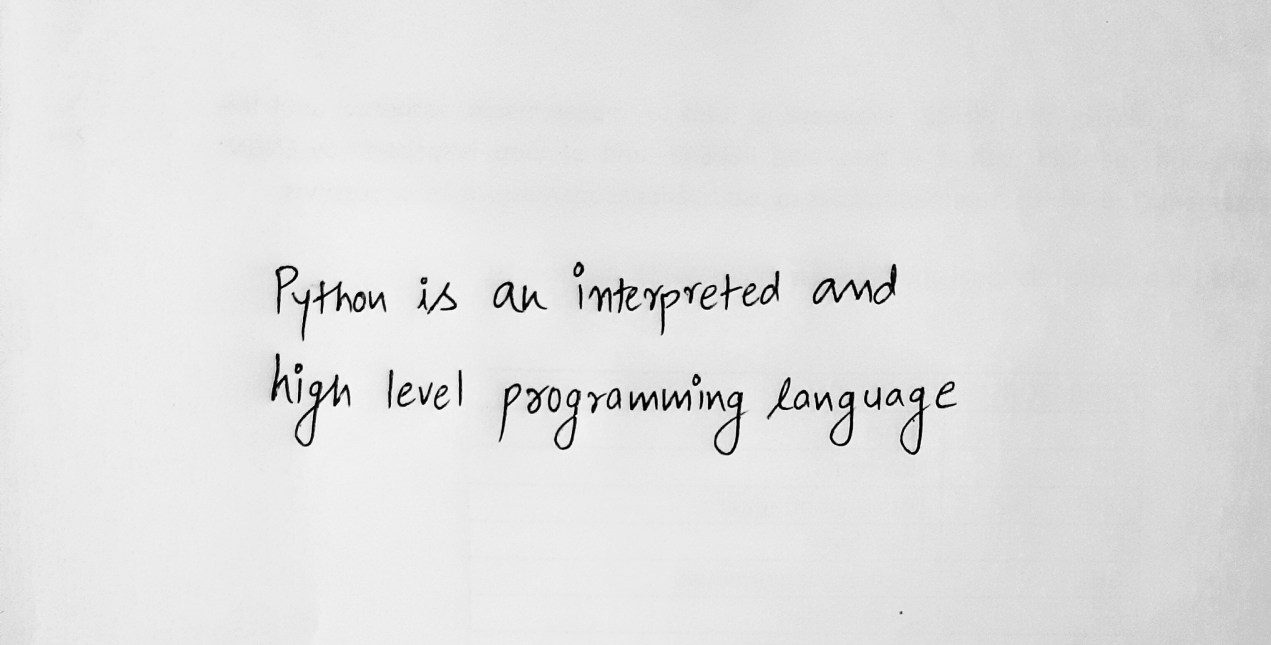 Python is an interpreted and
high level programming language